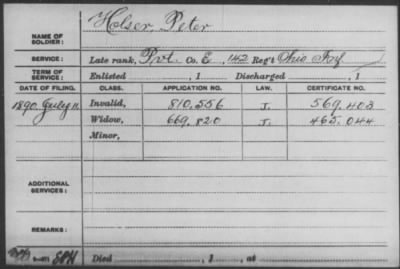 Holser, Peter
NAME OF
SOLDIER:
SERVICE: Late rank, Pvt. Co. E, 142 Reg't Ohio Inf
TERM OF
SERVICE: Enlisted , 1 Discharged , 1
DATE OF FILING. CLASS. APPLICATION NO. LAW. CERTIFICATE NO.
1890, July 11 Invalid, 810.556 J. 569.403
Widow, 669.820 J. 465.044
Minor,
ADDITIONAL
SERVICES:
REMARKS:
Died , 1 , at